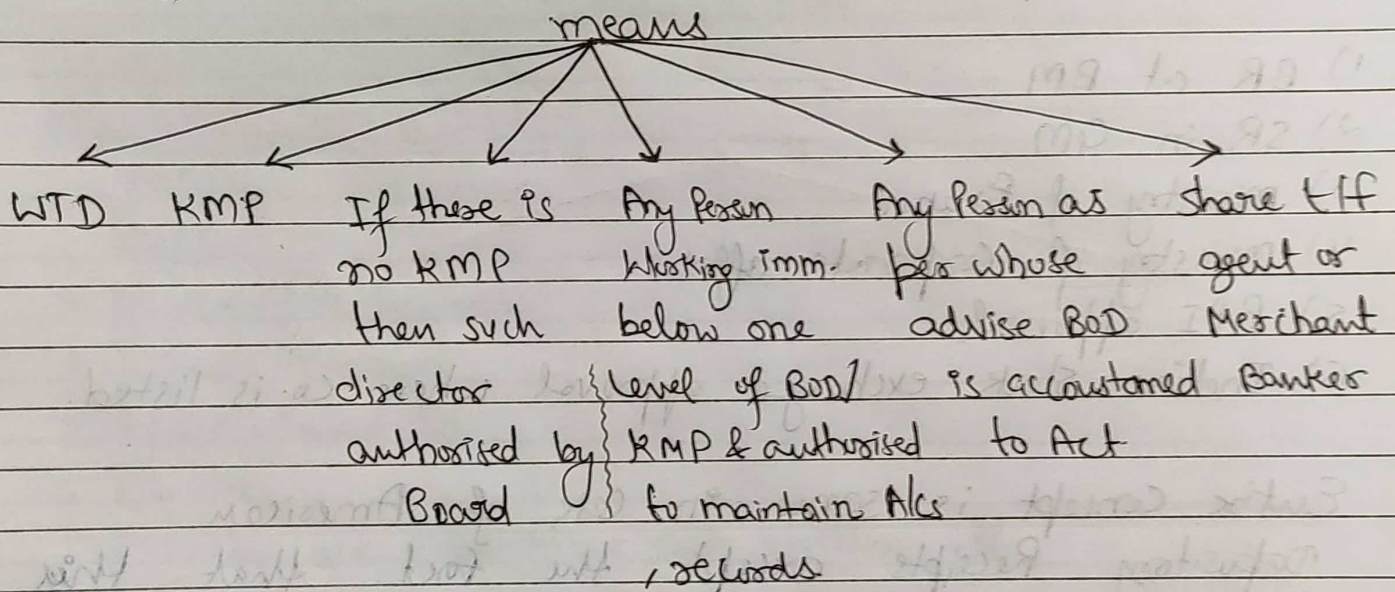 means
WTD
KMP
If there is
no KMP
then such
director
authorised by
Board
Any Person
Working imm.
below one
level of BOD/
KMP & authorised
to maintain A/cs
, records
Any Person as
per whose
advise BOD
is accoustomed
to Act
share t/f
agent or
Merchant
Banker